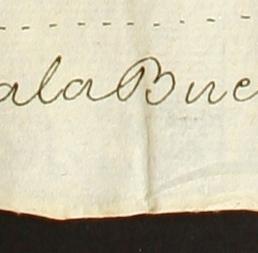 ala Bue